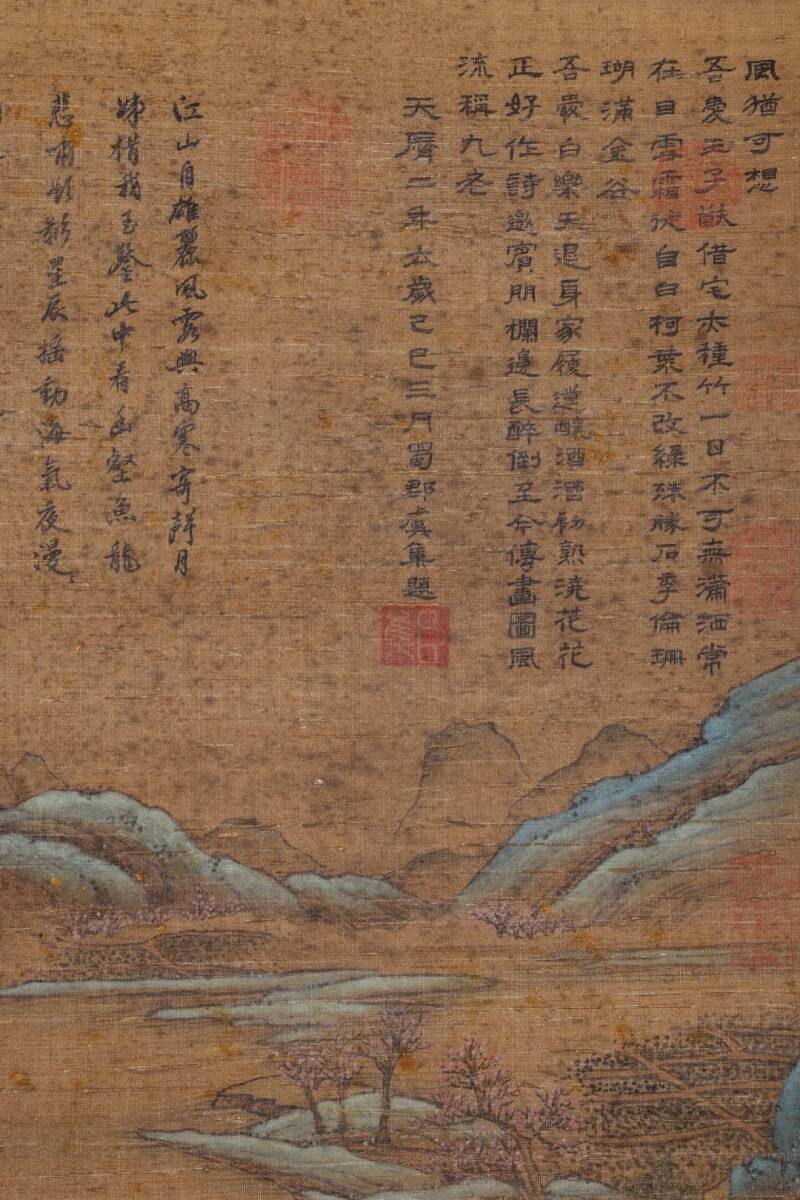 風猶可想
吾愛王子猷借宅亦種竹一日不可無瀟洒常
在目雪霜徒自白柯葉不改綠殊勝石季倫珊
瑚滿金谷
吾愛白樂天退身家履道釀酒酒初熟澆花花
正好作詩邀賓朋欄邊長醉倒至今傳畫圖風
流稱九老
天曆二年太歲己巳三月蜀郡虞集題
江山自雄麗風露與高寒寄
月
姊借我玉鑒此中看幽壑魚龍
悲嘯
影星辰搖動海氣夜漫